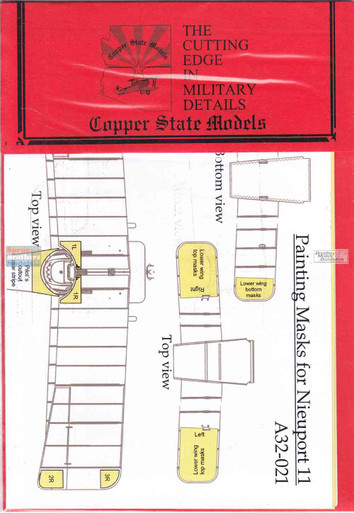 Copper State Models
THE
CUTTING
EDGE
IN
MILITARY
DETAILS
Copper State Models
Painting Masks for Nieuport 11
A32-021
Bottom view
Lower wing
bottom
masks
Lower wing
top masks
Right
Top view
Left
Lower wing
top masks
Top view
1L
1R
2R
3R